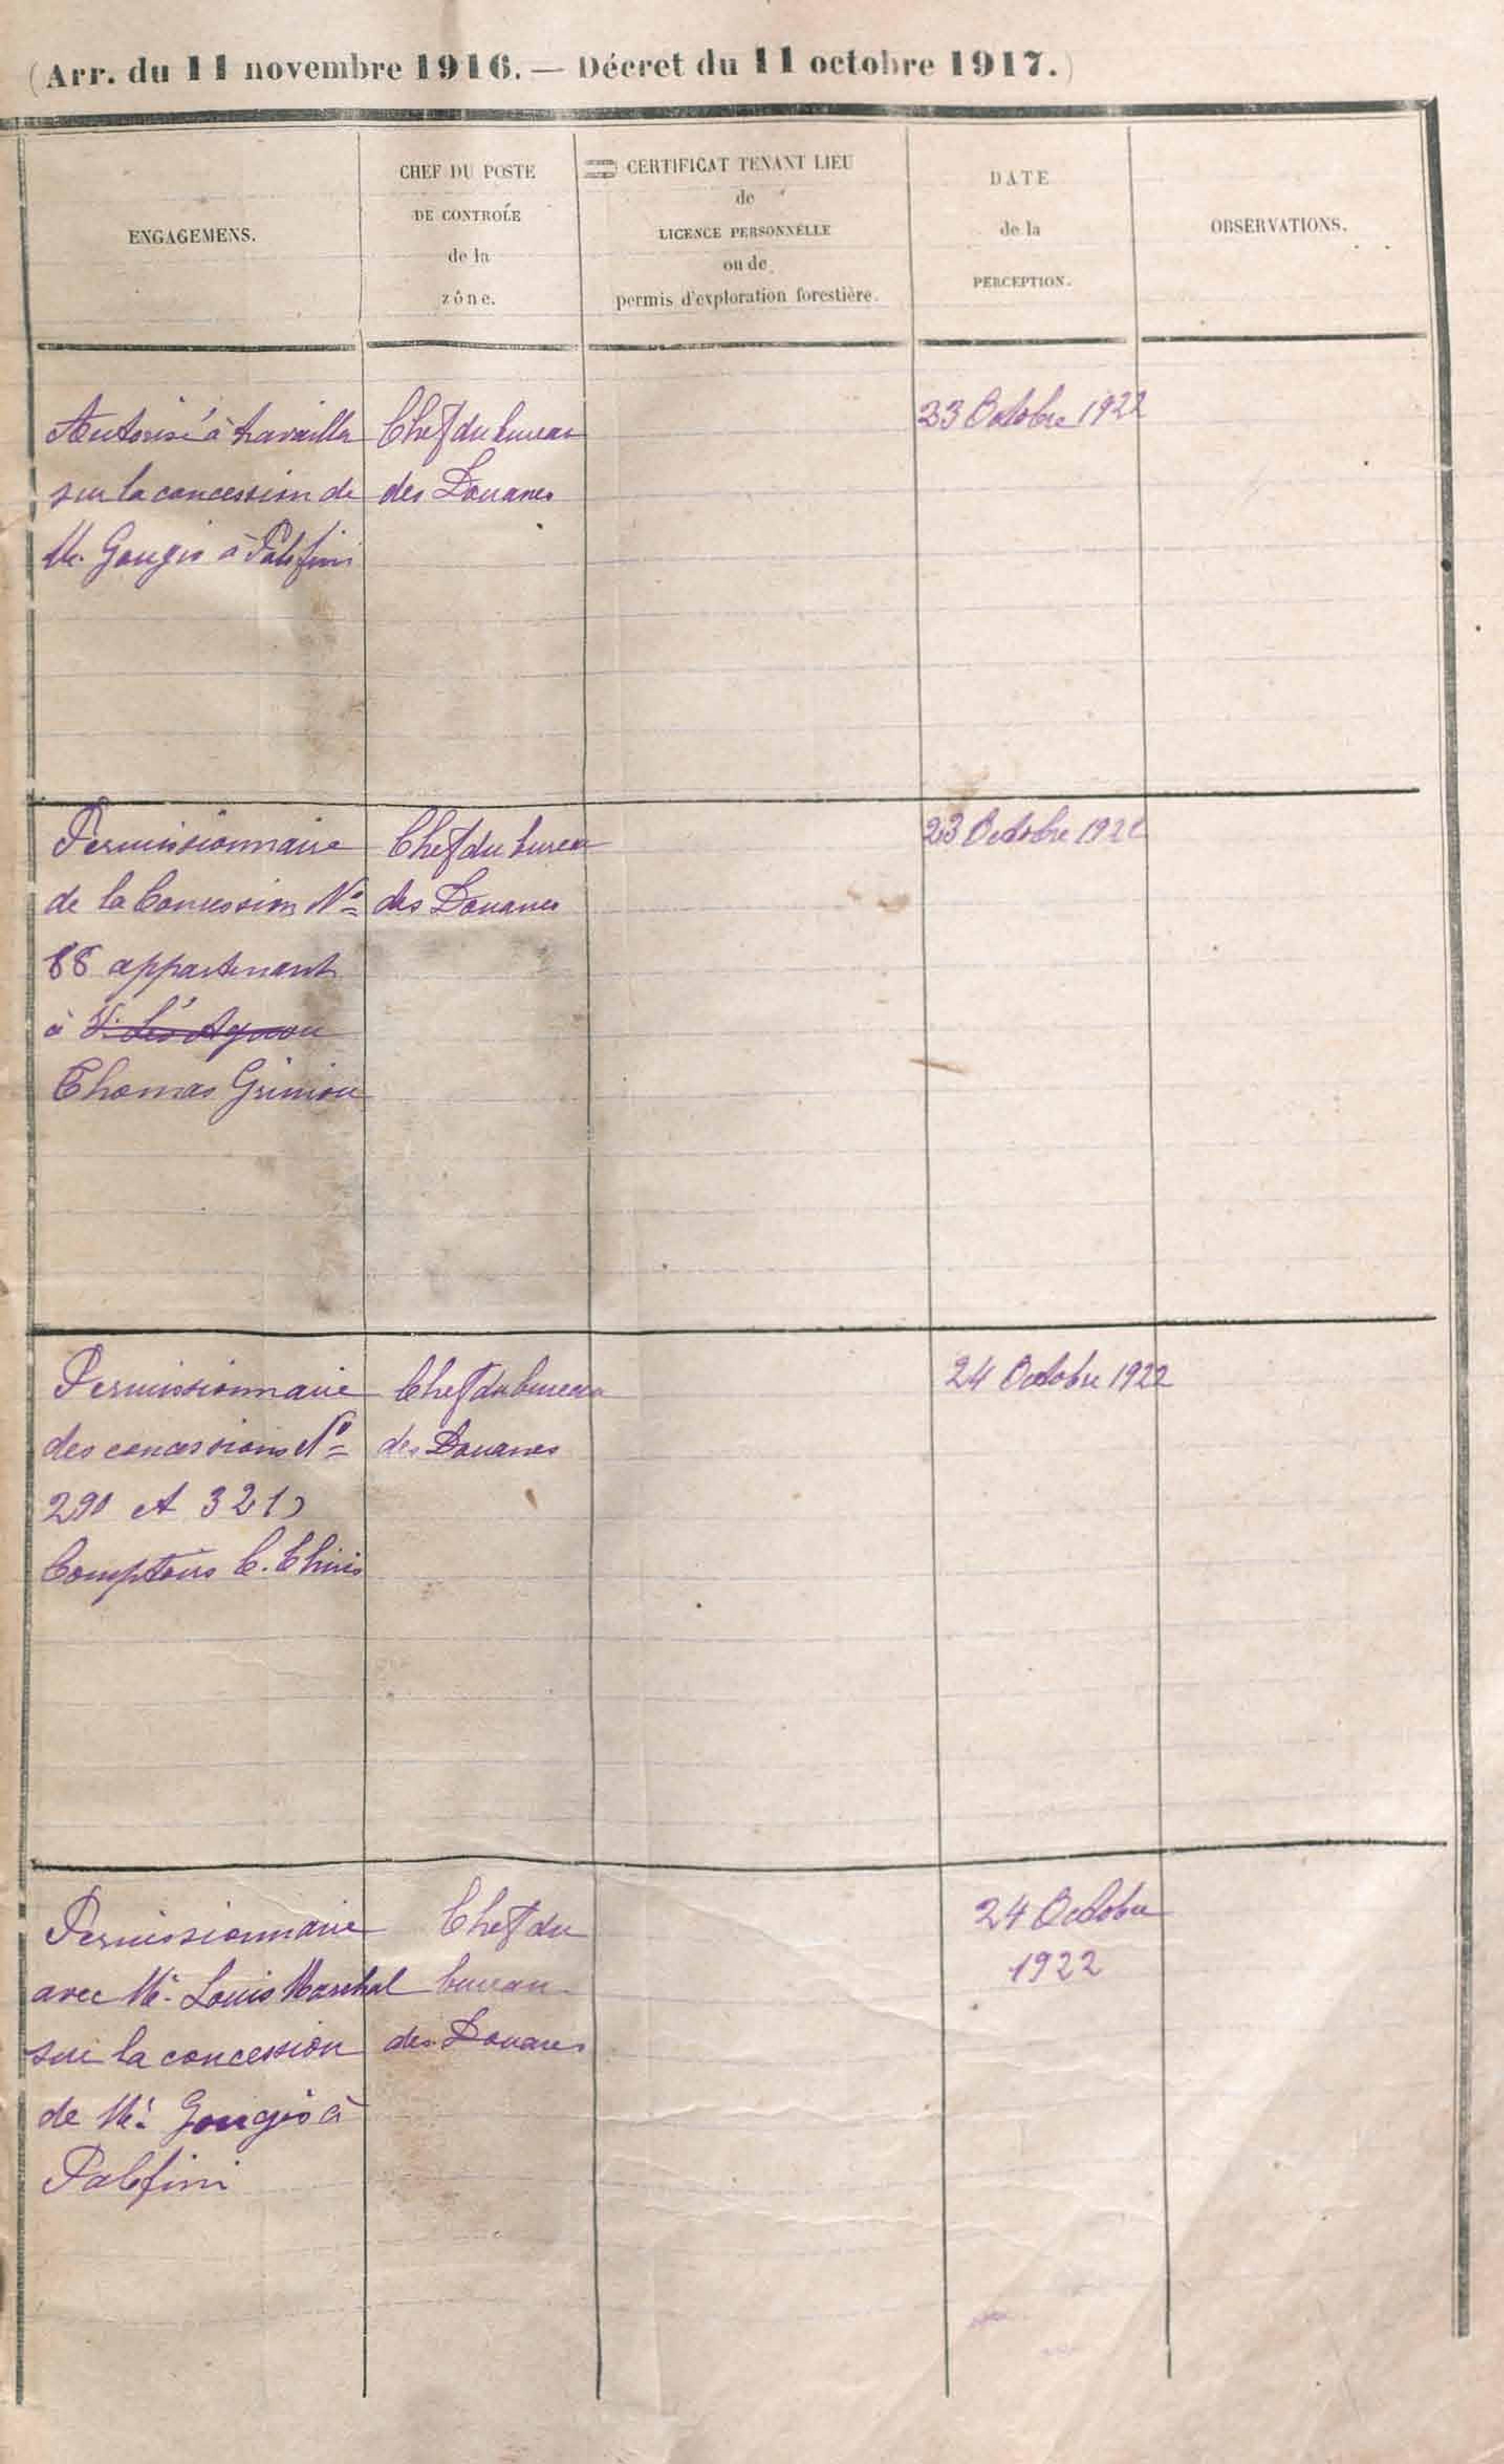 (Arr. du 11 novembre 1916. — Décret du 11 octobre 1917.)
ENGAGEMENS.
CHEF DU POSTE
DE CONTROLE
de la
zône.
CERTIFICAT TENANT LIEU
de
LICENCE PERSONNELLE
ou de
permis d'exploration forestière.
DATE
de la
PERCEPTION.
OBSERVATIONS.
Autorisé à travailler
sur la concession de
M. Gougis à Patefini
Chef du bureau
des Douanes
23 Octobre 1922
Permissionnaire
de la Concession Nº
88 appartenant
à
Thomas Grimon
Chef du bureau
des Douanes
23 Octobre 1922
Permissionnaire
des concessions Nº
290 et 321
Comptoirs C. Chiris
Chef du bureau
des Douanes
24 Octobre 1922
Permissionnaire
avec Mr. Louis Marchal
sur la concession
de Mr. Gougis à
Patefini
Chef du
bureau
des Douanes
24 Octobre
1922